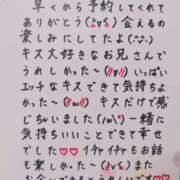 早くから予約してくれて
ありがとう(≧▽≦)会えるの
楽しみにしてたよ(¨̮)
キス大好きなお兄さんで
うれしかった〜(//▽//)いっぱい
エッチなキスできて気持ちよ
かった〜(//ω//) キスだけで感
じちゃいました(/ω\)一緒に
気持ちいいことできて幸せ
でした♡♡イチャイチャもお話
も楽しかった〜(≧▽≦)また
お会いできたらうれしいです♡